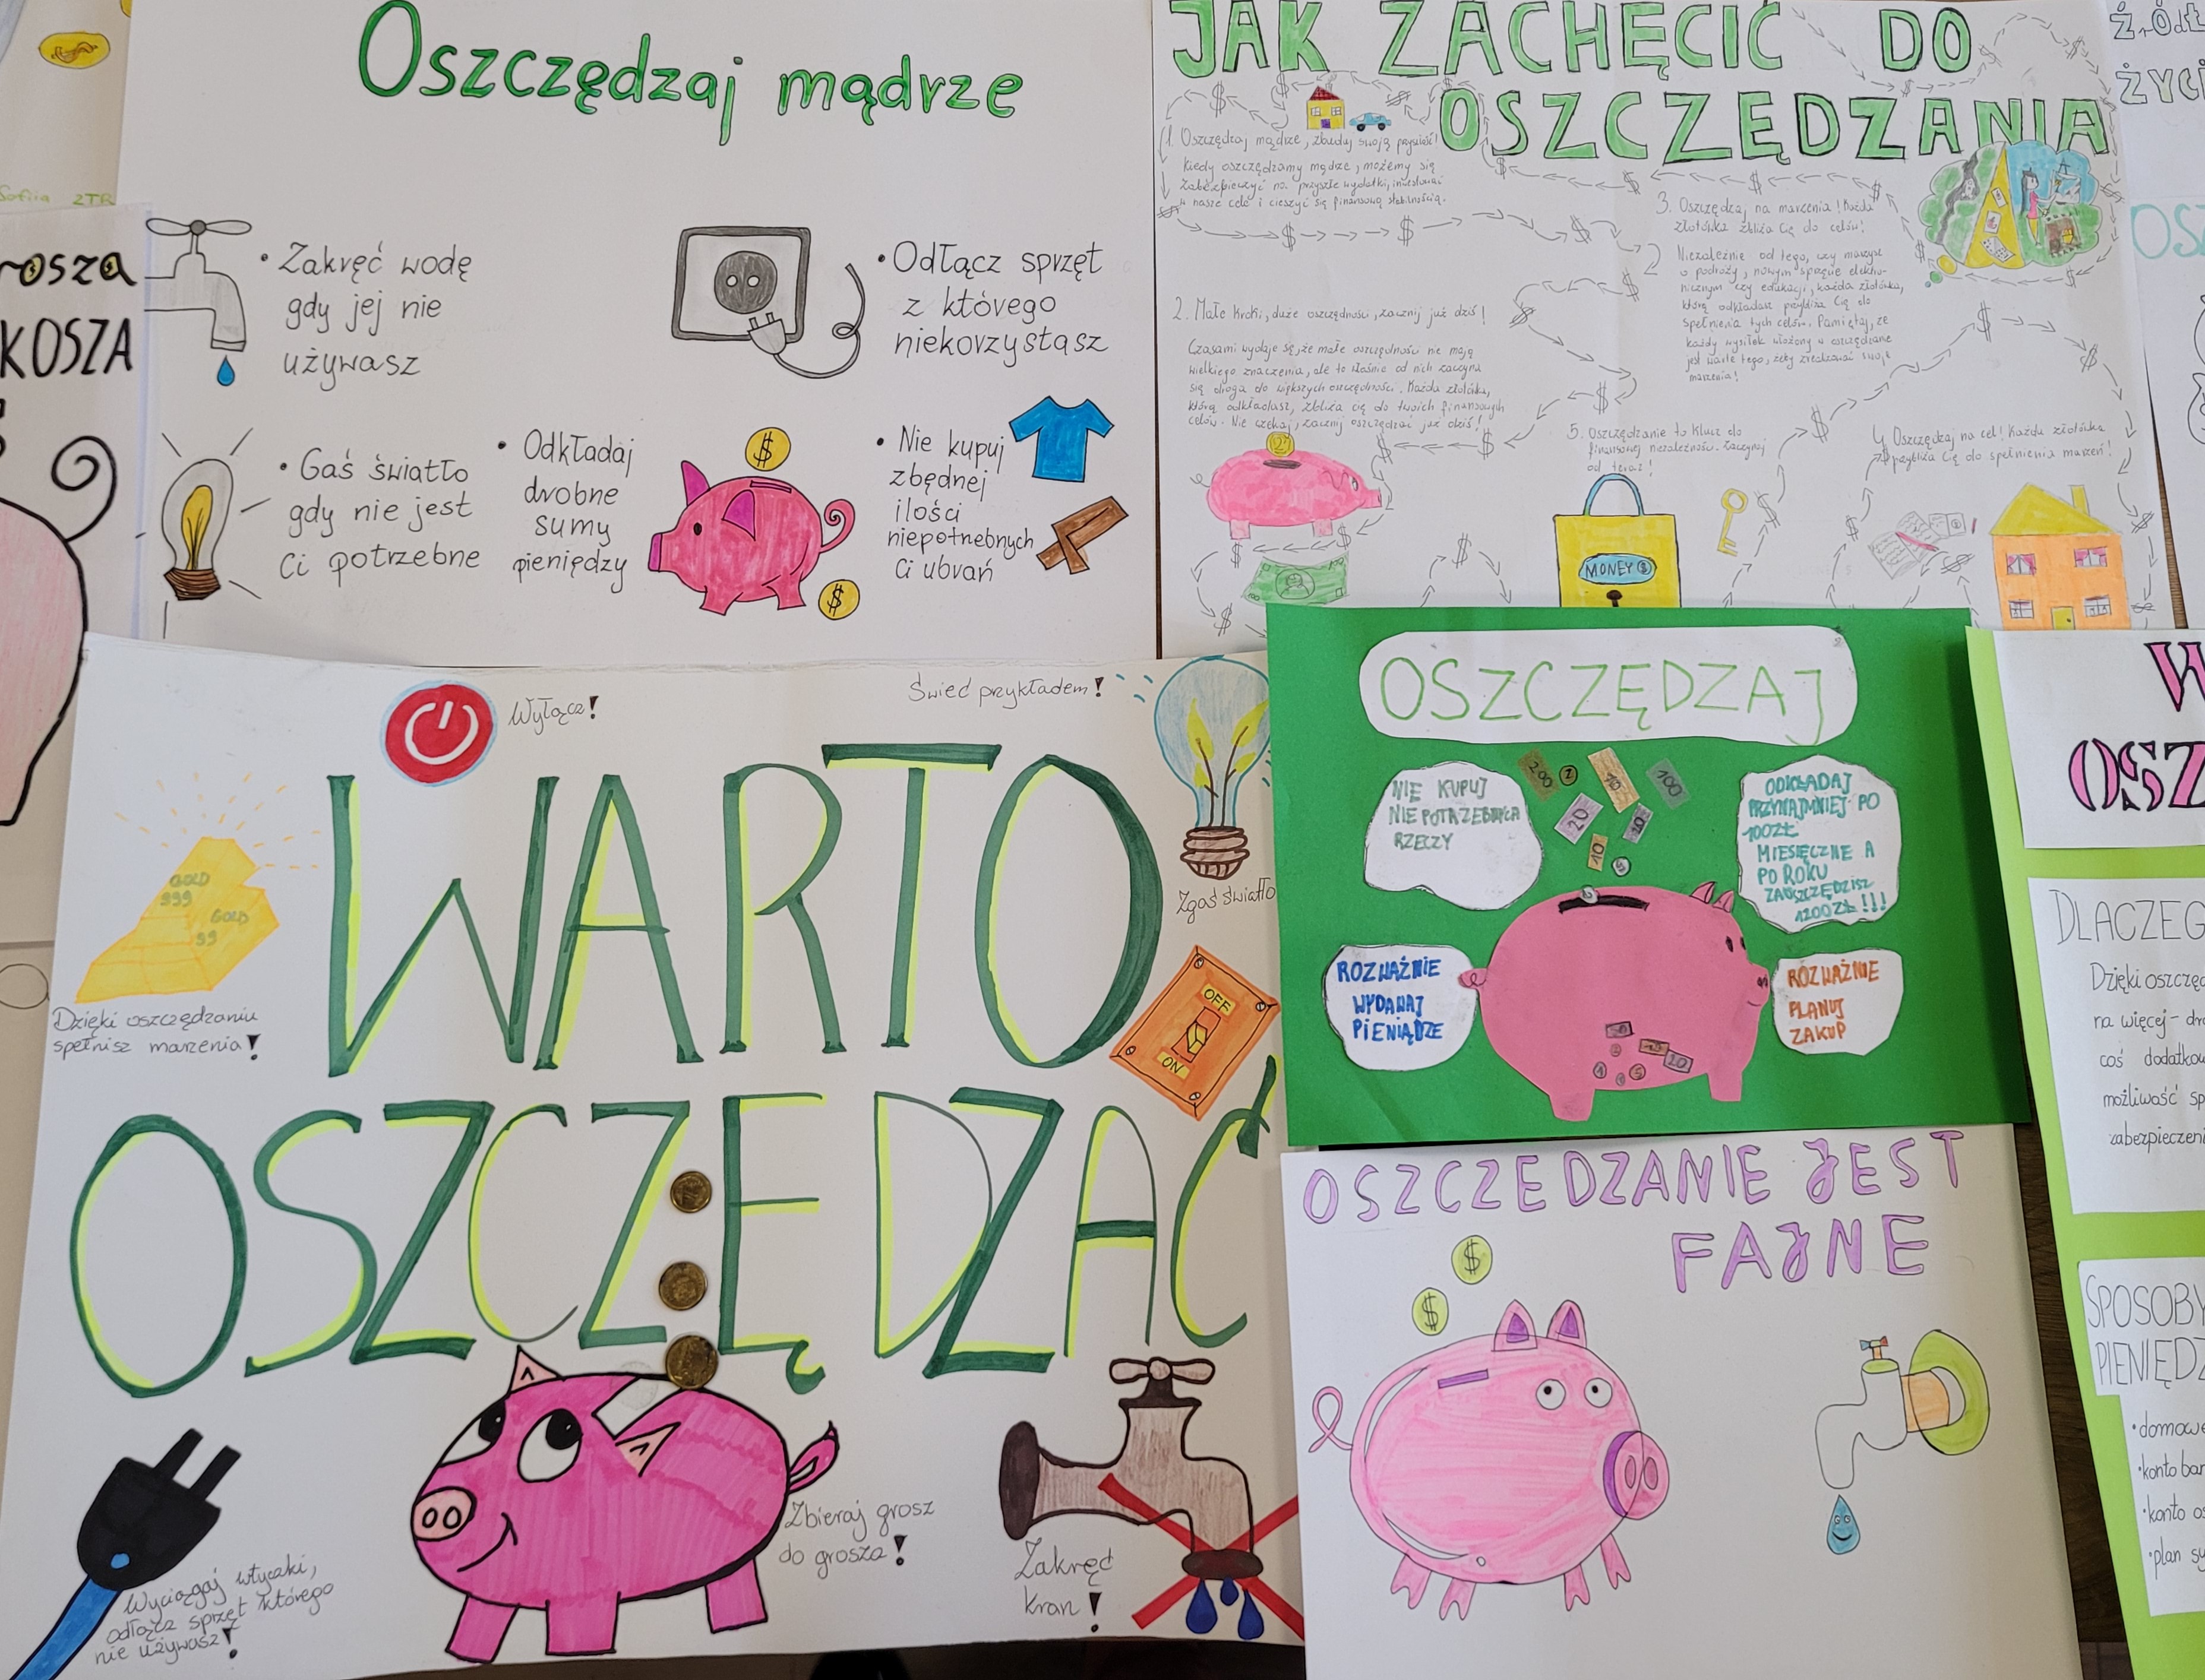 Sofiia 2TR
rosza
KOSZA
Oszczędzaj mądrze
• Zakręć wodę
gdy jej nie
używasz
• Odłącz sprzęt
z którego
niekorzystasz
• Gaś światło
gdy nie jest
Ci potrzebne
• Odkładaj
drobne
sumy
pieniędzy
$
$
• Nie kupuj
zbędnej
ilości
niepotrzebnych
Ci ubrań
JAK ZACHĘCIĆ DO
OSZCZĘDZANIA
1. Oszczędzaj mądrze, zbuduj swoją przyszłość!
Kiedy oszczędzamy mądrze, możemy się
zabezpieczyć na przyszłe wydatki, inwestować
w nasze cele i cieszyć się finansową stabilnością.
2. Małe kroki, duże oszczędności, zacznij już dziś!
Czasami wydaje się, że małe oszczędności nie mają
wielkiego znaczenia, ale to właśnie od nich zaczyna
się droga do większych oszczędności. Każda złotówka,
którą odkładasz, zbliża cię do twoich finansowych
celów. Nie czekaj, zacznij oszczędzać już dziś!
3. Oszczędzaj na marzenia! Każda
złotówka zbliża Cię do celów!
2 Niezależnie od tego, czy marzysz
o podróży, nowym sprzęcie elektro-
nicznym czy edukacji, każda złotówka,
którą odkładasz przybliża Cię do
spełnienia tych celów. Pamiętaj, że
każdy wysiłek włożony w oszczędzanie
jest warte tego, żeby zrealizować swoje
marzenia!
5. Oszczędzanie to klucz do
finansowej niezależności. Zacznij
od teraz!
4. Oszczędzaj na cel! Każda złotówka
przybliża Cię do spełnienia marzeń!
MONEY $
ŻYCI
Wyłącz!
Świeć przykładem!
WARTO
OSZCZĘDZAĆ
GOLD
999
GOLD
99
Dzięki oszczędzaniu
spełnisz marzenia!
Zgaś światło
OFF
ON
Wyciągaj wtyczki,
odłącz sprzęt którego
nie używasz!
Zbieraj grosz
do grosza!
Zakręć
kran!
OSZCZĘDZAJ
NIE KUPUJ
NIEPOTRZEBNYCH
RZECZY
200 2 10 100
20 10
10 5
ODKŁADAJ
PRZYNAJMNIEJ PO
100ZŁ
MIESIĘCZNE A
PO ROKU
ZAOSZCZĘDZISZ
1200ZŁ!!!
ROZWAŻNIE
WYDAWAJ
PIENIĄDZE
ROZWAŻNIE
PLANUJ
ZAKUP
OSZCZEDZANIE JEST
FAJNE
$
$
W
OSZ
DLACZEG
Dzięki oszczęd
na więcej - dro
coś dodatkow
możliwość sp
zabezpieczeni
SPOSOBY
PIENIĘDZ
• domowe
• konto ban
• konto os
• plan sy